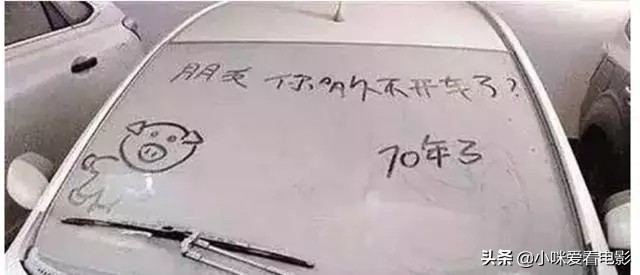 朋友 你多久不开车了?
70年了
头条 @小咪爱看电影